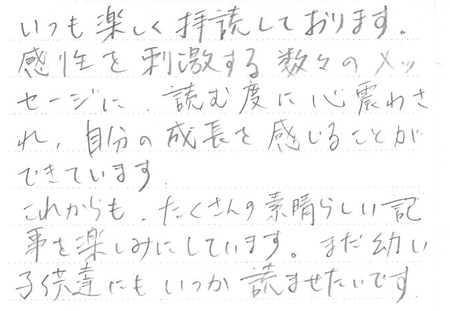 いつも楽しく拝読しております。
感性を刺激する数々のメッ
セージに、読む度に心震わさ
れ、自分の成長を感じることが
できています
これからも、たくさんの素晴らしい記
事を楽しみにしています。まだ幼い
子供達にもいつか読ませたいです